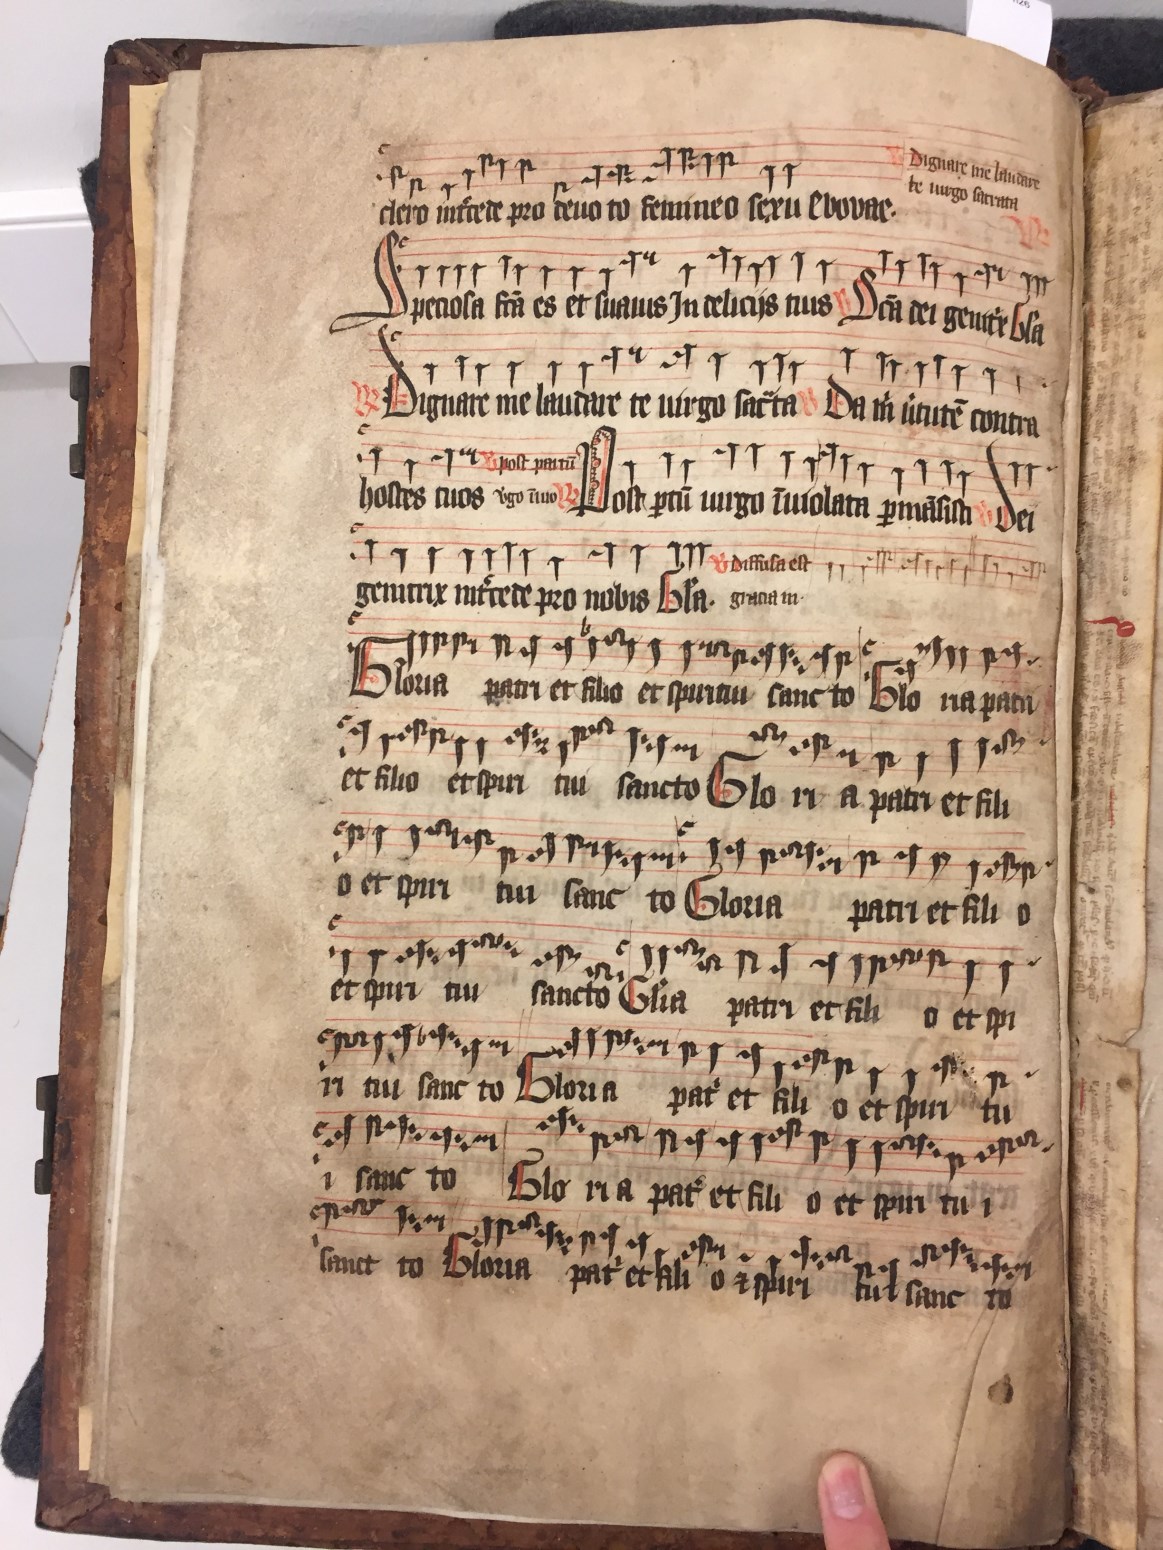 Dignare me laudare
te uirgo sacrata
clero int̄cede pro deuo to femineo sexu Euouae.
Speciosa fc̄a es et suauis In delicijs tuis V Sc̄a dei genit̄x Gl̄a
R Dignare me laudare te uirgo sac̄ta V Da m̄ ūtutē contra
hostes tuos V post partū v̄go īuio R Post p̄tū uirgo īuiolata p̄māsisti V Dei
genitrix int̄cede pro nobis Gl̄a. V Diffusa est gracia in.
Gloria patri et filio et spiritui sanc to Glo ria patri
et filio et spiri tui sancto Glo ri a patri et fili
o et spiri tui sanc to Gloria patri et fili o
et spiri tui sancto Gl̄ia patri et fili o et spi
ri tui sanc to Gloria pat̄ et fili o et spiri tu
i sanc to Glo ri a pat̄ et fili o et spiri tu i
sanct to Gloria pat̄ et fili o ⁊ spiri tui sanc to